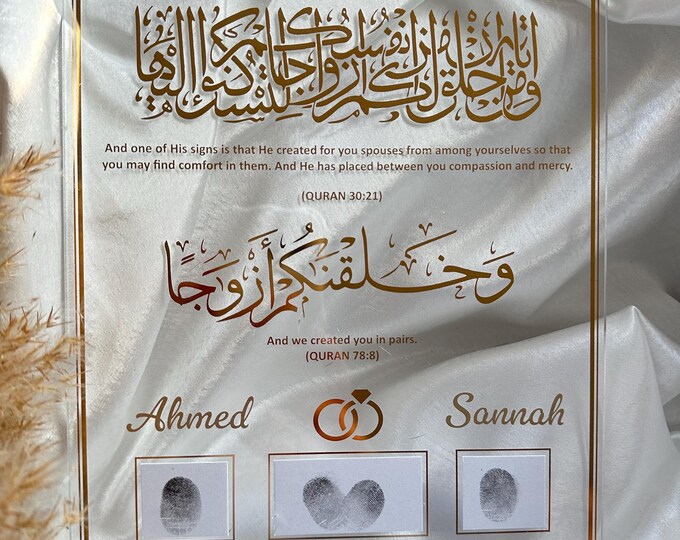 ومن آياته أن خلق لكم من أنفسكم أزواجا لتسكنوا إليها
And one of His signs is that He created for you spouses from among yourselves so that
you may find comfort in them. And He has placed between you compassion and mercy.
(QURAN 30:21)
وَخَلَقْنَكُمْ أَزْوَجًا
And we created you in pairs.
(QURAN 78:8)
Ahmed Sannah